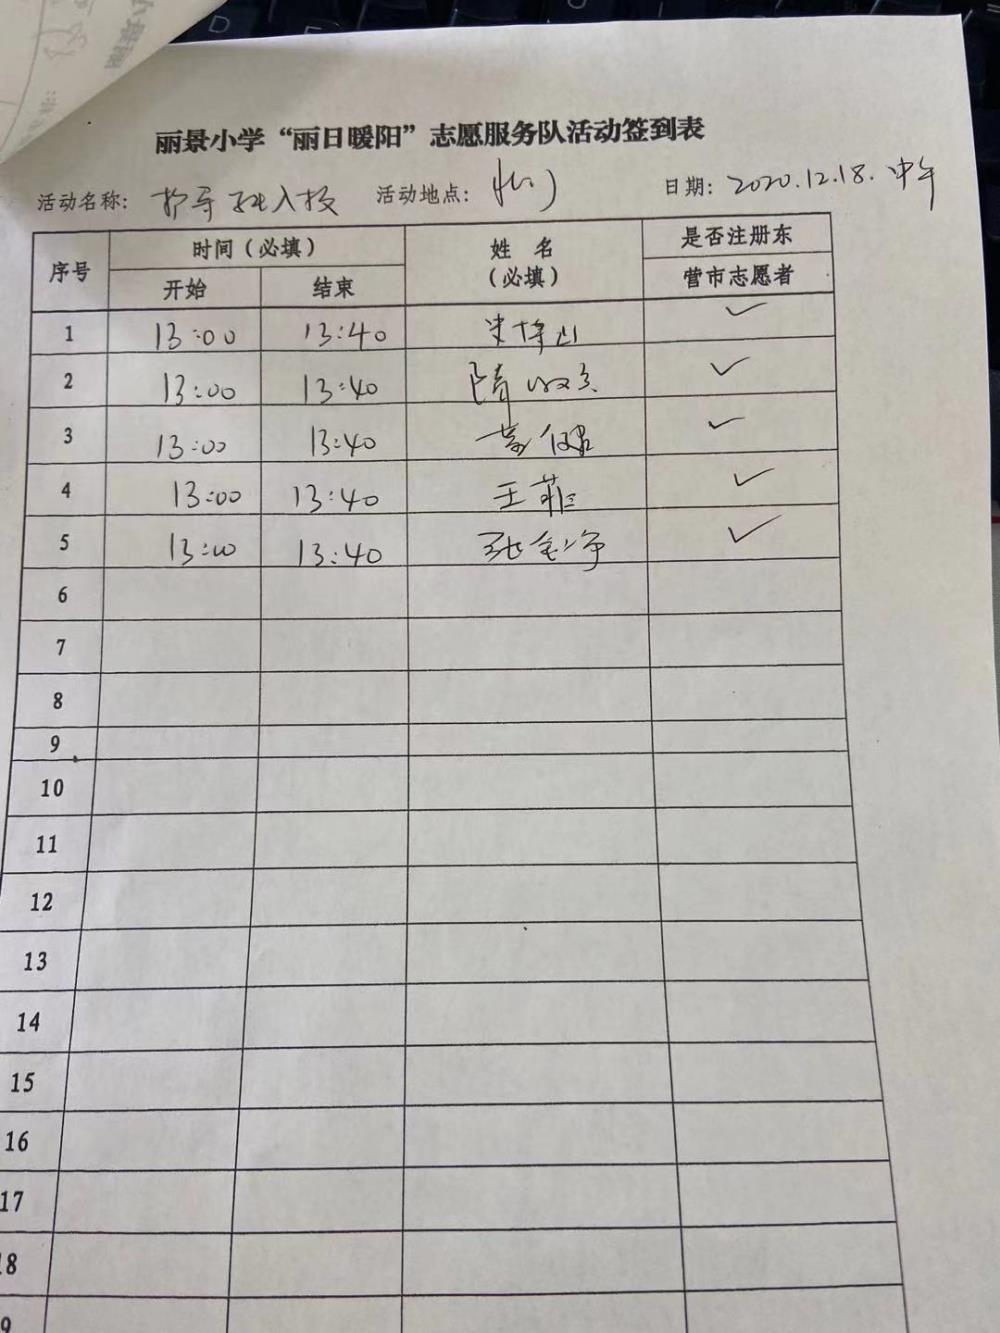 丽景小学“丽日暖阳”志愿服务队活动签到表
活动名称: 入校 活动地点: 校门 日期: 2020.12.18.中午
序号 时间(必填) 姓 名 (必填) 是否注册东营市志愿者
开始 结束
1 13:00 13:40 ✓
2 13:00 13:40 隋 ✓
3 13:00 13:40 ✓
4 13:00 13:40 王菲 ✓
5 13:00 13:40 张 ✓
6
7
8
9
10
11
12
13
14
15
16
17
18
9